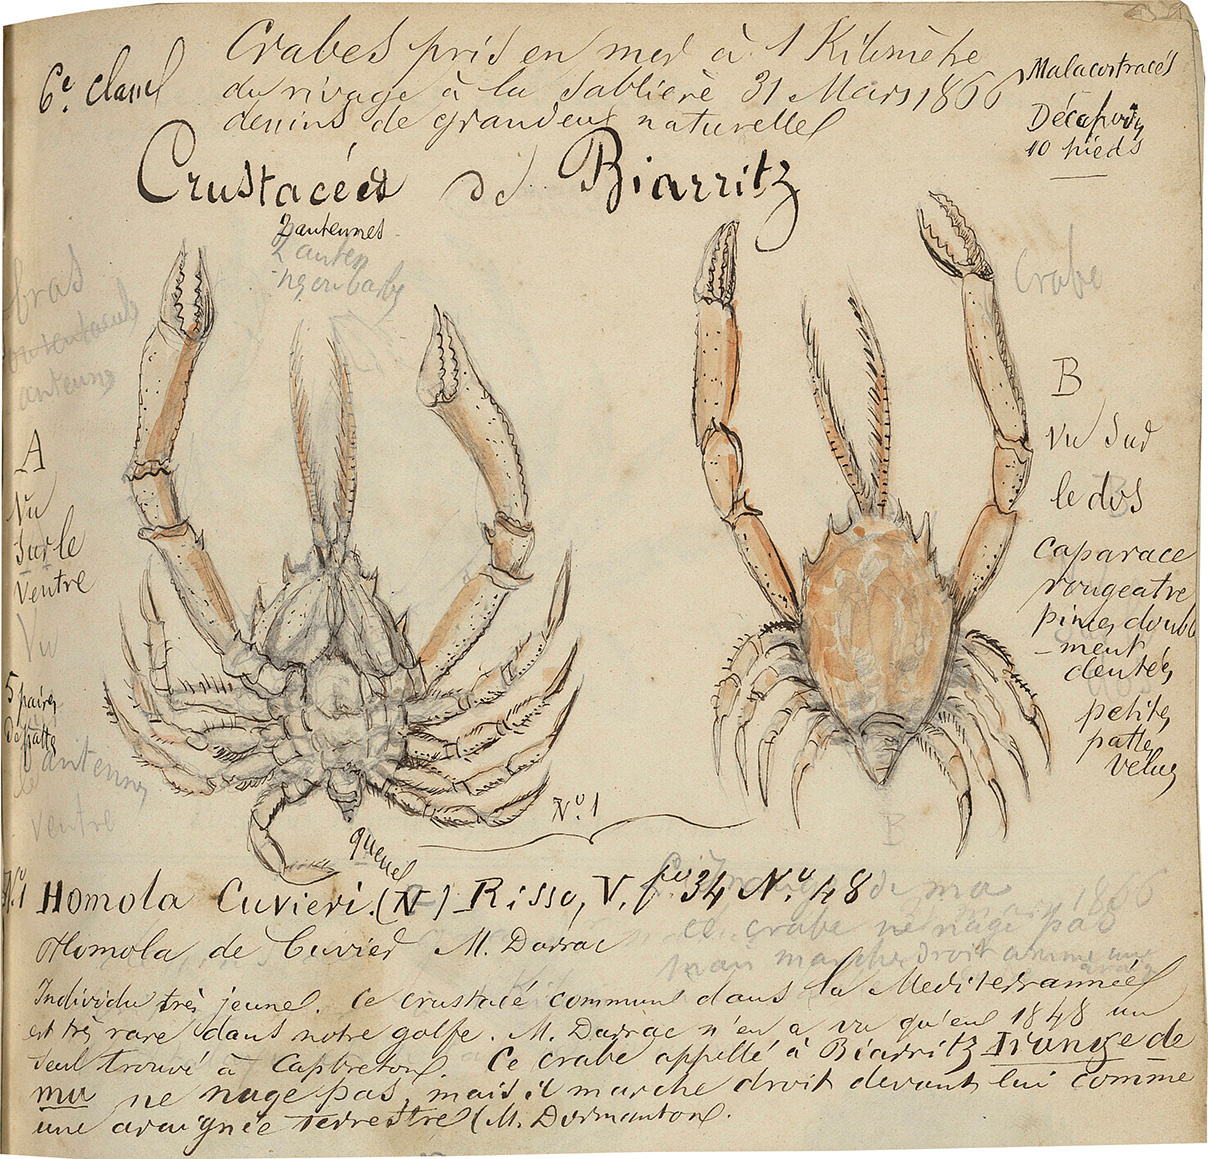 6e. classe
Crabes pris en mer à 1 Kilomètre
du rivage à la Sablière 31 Mars 1866
dessins de grandeur naturelle
Malacostracés
Décapodes
10 pieds
Crustacées de Biarritz
2 antennes
2 anten
bras
antenn
Crabe
A
Vu
Sur le
Ventre
Vu
5 paires
De patte
antennes
ventre
B
Vu Sur
le dos
caparace
rougeatre
pinces double
-ment
dentées
petites
pattes
velues
B
No. 1
queue
No. 1 Homola Cuvieri. (N) Risso, V. fo. 34 No. 48
de ma 1866
Homola de Cuvier M. Darrac
ce crabe ne nage pas
mais marche droit comme une
Individu très jeune. Ce crustacé commun dans la Mediterrannée
est très rare dans notre golfe. M. Darrac n'en a vu qu'en 1848 un
seul trouvé à Capbreton. Ce crabe appellé à Biarritz Irange de
ma ne nage pas, mais il marche droit devant lui comme
une araignée terrestre (M. Dermanton.